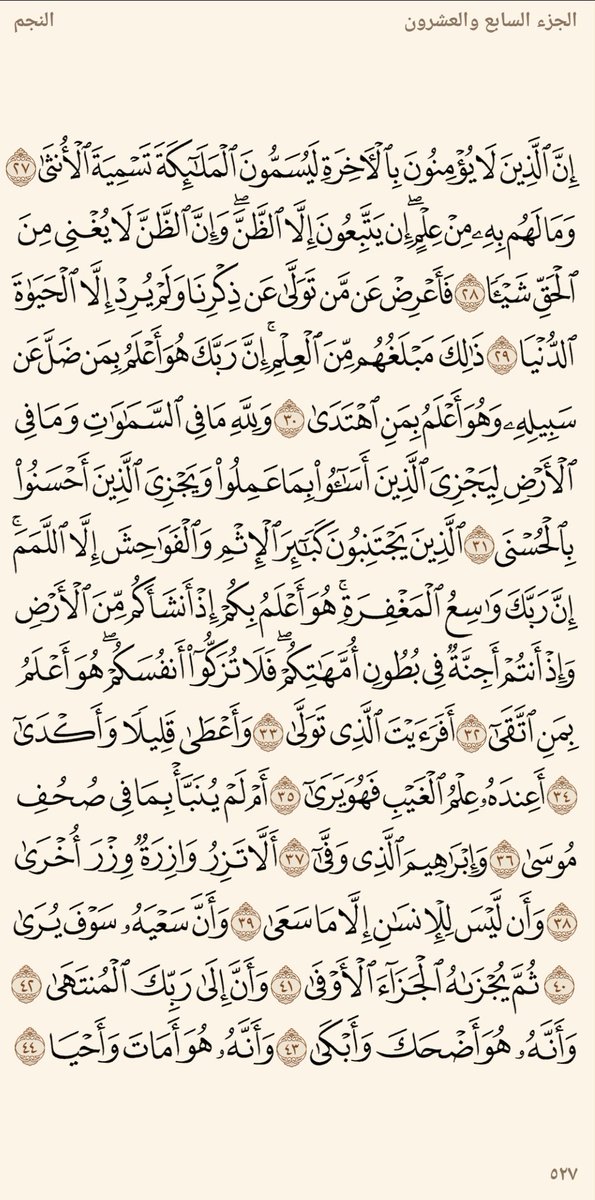 الجزء السابع والعشرون
النجم
إِنَّ ٱلَّذِينَ لَا يُؤۡمِنُونَ بِٱلۡأٓخِرَةِ لَيُسَمُّونَ ٱلۡمَلَٰٓئِكَةَ تَسۡمِيَةَ ٱلۡأُنثَىٰ ٢٧
وَمَا لَهُم بِهِۦ مِنۡ عِلۡمٍۖ إِن يَتَّبِعُونَ إِلَّا ٱلظَّنَّۖ وَإِنَّ ٱلظَّنَّ لَا يُغۡنِي مِنَ
ٱلۡحَقِّ شَيۡـٔٗا ٢٨ فَأَعۡرِضۡ عَن مَّن تَوَلَّىٰ عَن ذِكۡرِنَا وَلَمۡ يُرِدۡ إِلَّا ٱلۡحَيَوٰةَ
ٱلدُّنۡيَا ٢٩ ذَٰلِكَ مَبۡلَغُهُم مِّنَ ٱلۡعِلۡمِۚ إِنَّ رَبَّكَ هُوَ أَعۡلَمُ بِمَن ضَلَّ عَن
سَبِيلِهِۦ وَهُوَ أَعۡلَمُ بِمَنِ ٱهۡتَدَىٰ ٣٠ وَلِلَّهِ مَا فِي ٱلسَّمَٰوَٰتِ وَمَا فِي
ٱلۡأَرۡضِ لِيَجۡزِيَ ٱلَّذِينَ أَسَٰٓـُٔواْ بِمَا عَمِلُواْ وَيَجۡزِيَ ٱلَّذِينَ أَحۡسَنُواْ
بِٱلۡحُسۡنَى ٣١ ٱلَّذِينَ يَجۡتَنِبُونَ كَبَٰٓئِرَ ٱلۡإِثۡمِ وَٱلۡفَوَٰحِشَ إِلَّا ٱللَّمَمَۚ
إِنَّ رَبَّكَ وَٰسِعُ ٱلۡمَغۡفِرَةِۚ هُوَ أَعۡلَمُ بِكُمۡ إِذۡ أَنشَأَكُم مِّنَ ٱلۡأَرۡضِ
وَإِذۡ أَنتُمۡ أَجِنَّةٞ فِي بُطُونِ أُمَّهَٰتِكُمۡۖ فَلَا تُزَكُّوٓاْ أَنفُسَكُمۡۖ هُوَ أَعۡلَمُ
بِمَنِ ٱتَّقَىٰٓ ٣٢ أَفَرَءَيۡتَ ٱلَّذِي تَوَلَّىٰ ٣٣ وَأَعۡطَىٰ قَلِيلٗا وَأَكۡدَىٰٓ
٣٤ أَعِندَهُۥ عِلۡمُ ٱلۡغَيۡبِ فَهُوَ يَرَىٰٓ ٣٥ أَمۡ لَمۡ يُنَبَّأۡ بِمَا فِي صُحُفِ
مُوسَىٰ ٣٦ وَإِبۡرَٰهِيمَ ٱلَّذِي وَفَّىٰٓ ٣٧ أَلَّا تَزِرُ وَازِرَةٞ وِزۡرَ أُخۡرَىٰ
٣٨ وَأَن لَّيۡسَ لِلۡإِنسَٰنِ إِلَّا مَا سَعَىٰ ٣٩ وَأَنَّ سَعۡيَهُۥ سَوۡفَ يُرَىٰ
٤٠ ثُمَّ يُجۡزَىٰهُ ٱلۡجَزَآءَ ٱلۡأَوۡفَىٰ ٤١ وَأَنَّ إِلَىٰ رَبِّكَ ٱلۡمُنتَهَىٰ ٤٢
وَأَنَّهُۥ هُوَ أَضۡحَكَ وَأَبۡكَىٰ ٤٣ وَأَنَّهُۥ هُوَ أَمَاتَ وَأَحۡيَا ٤٤
٥٢٧